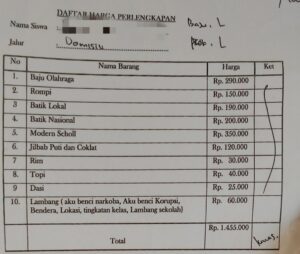 DAFTAR HARGA PERLENGKAPAN
Nama Siswa
Baju. L
Jalur : Domisili
No Nama Barang Harga Ket
1. Baju Olahraga Rp. 290.000
2. Rompi Rp. 150.000
3. Batik Lokal Rp. 190.000
4. Batik Nasional Rp. 200.000
5. Modern Scholl Rp. 350.000
6. Jilbab Puti dan Coklat Rp. 120.000
7. Rim Rp. 30.000
8. Topi Rp. 40.000
9 Dasi Rp. 25.000
10. Lambang ( aku benci narkoba, Aku benci Korupsi, Rp. 60.000
Bendera, Lokasi, tingkatan kelas, Lambang sekolah)
Total Rp. 1.455.000